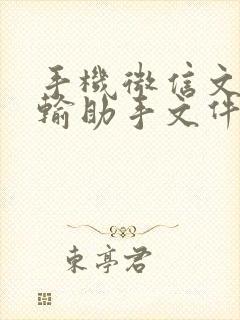 手機微信文
輸助手文件
東亭君